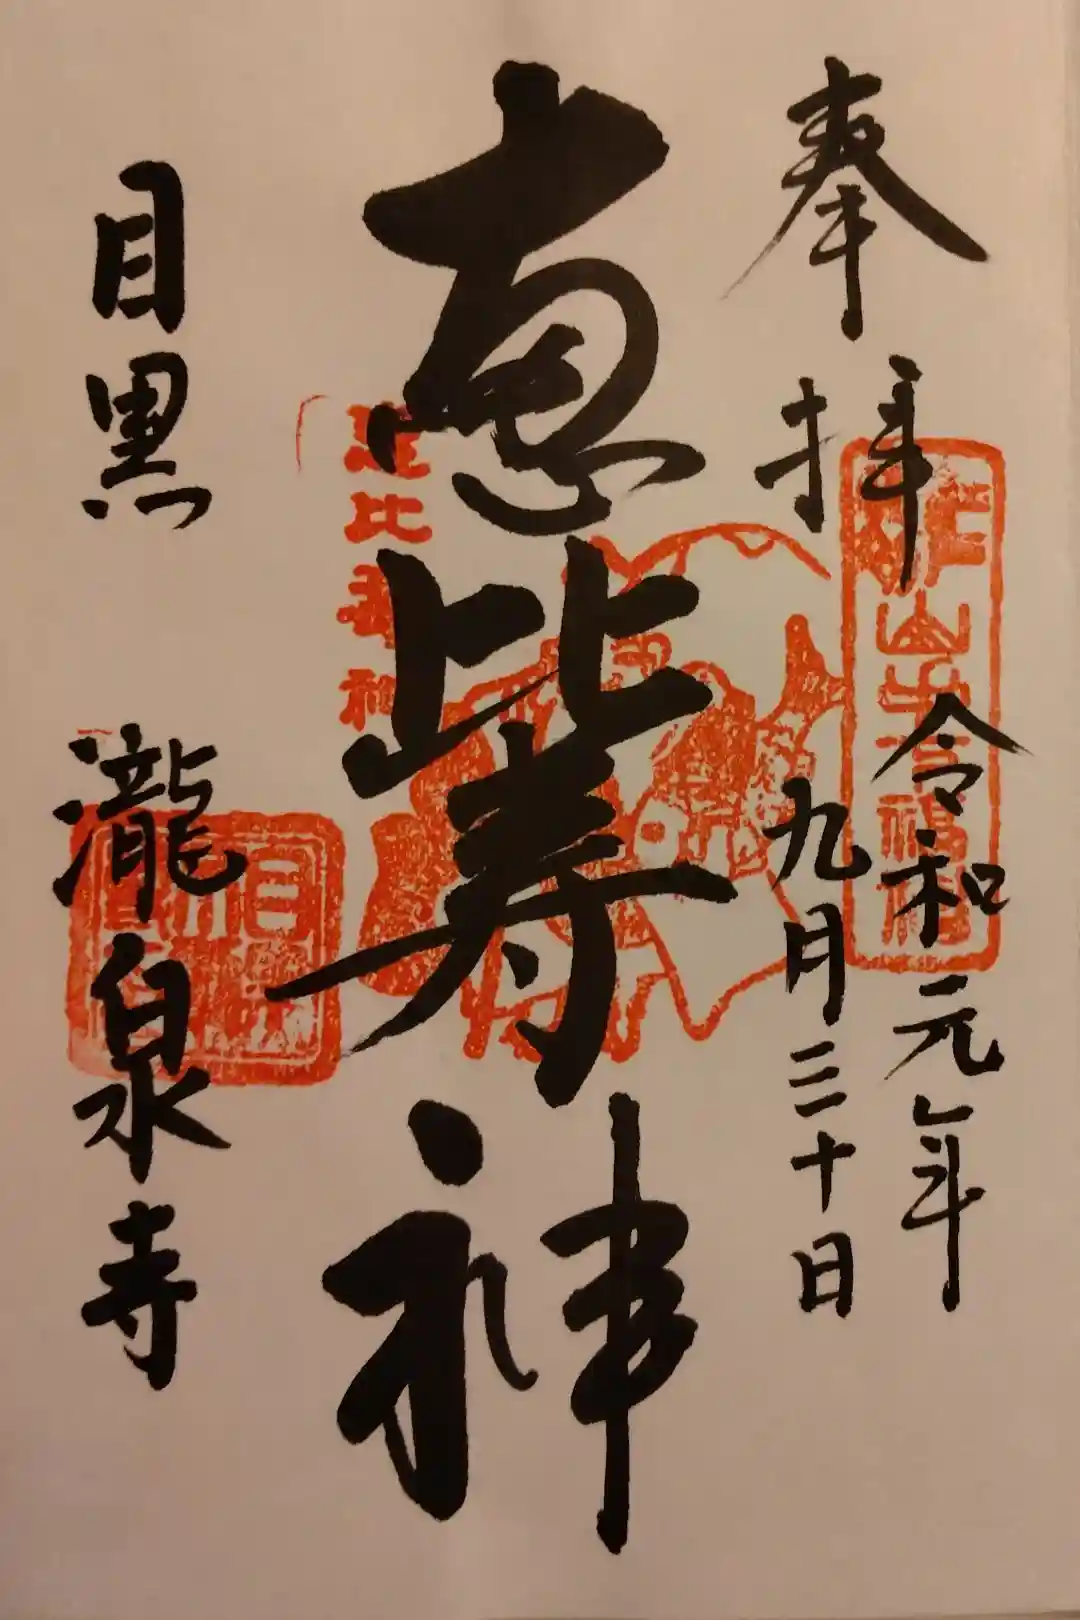 奉拝
令和元年
九月三十日
恵比寿神
恵比寿神
目黒
瀧泉寺